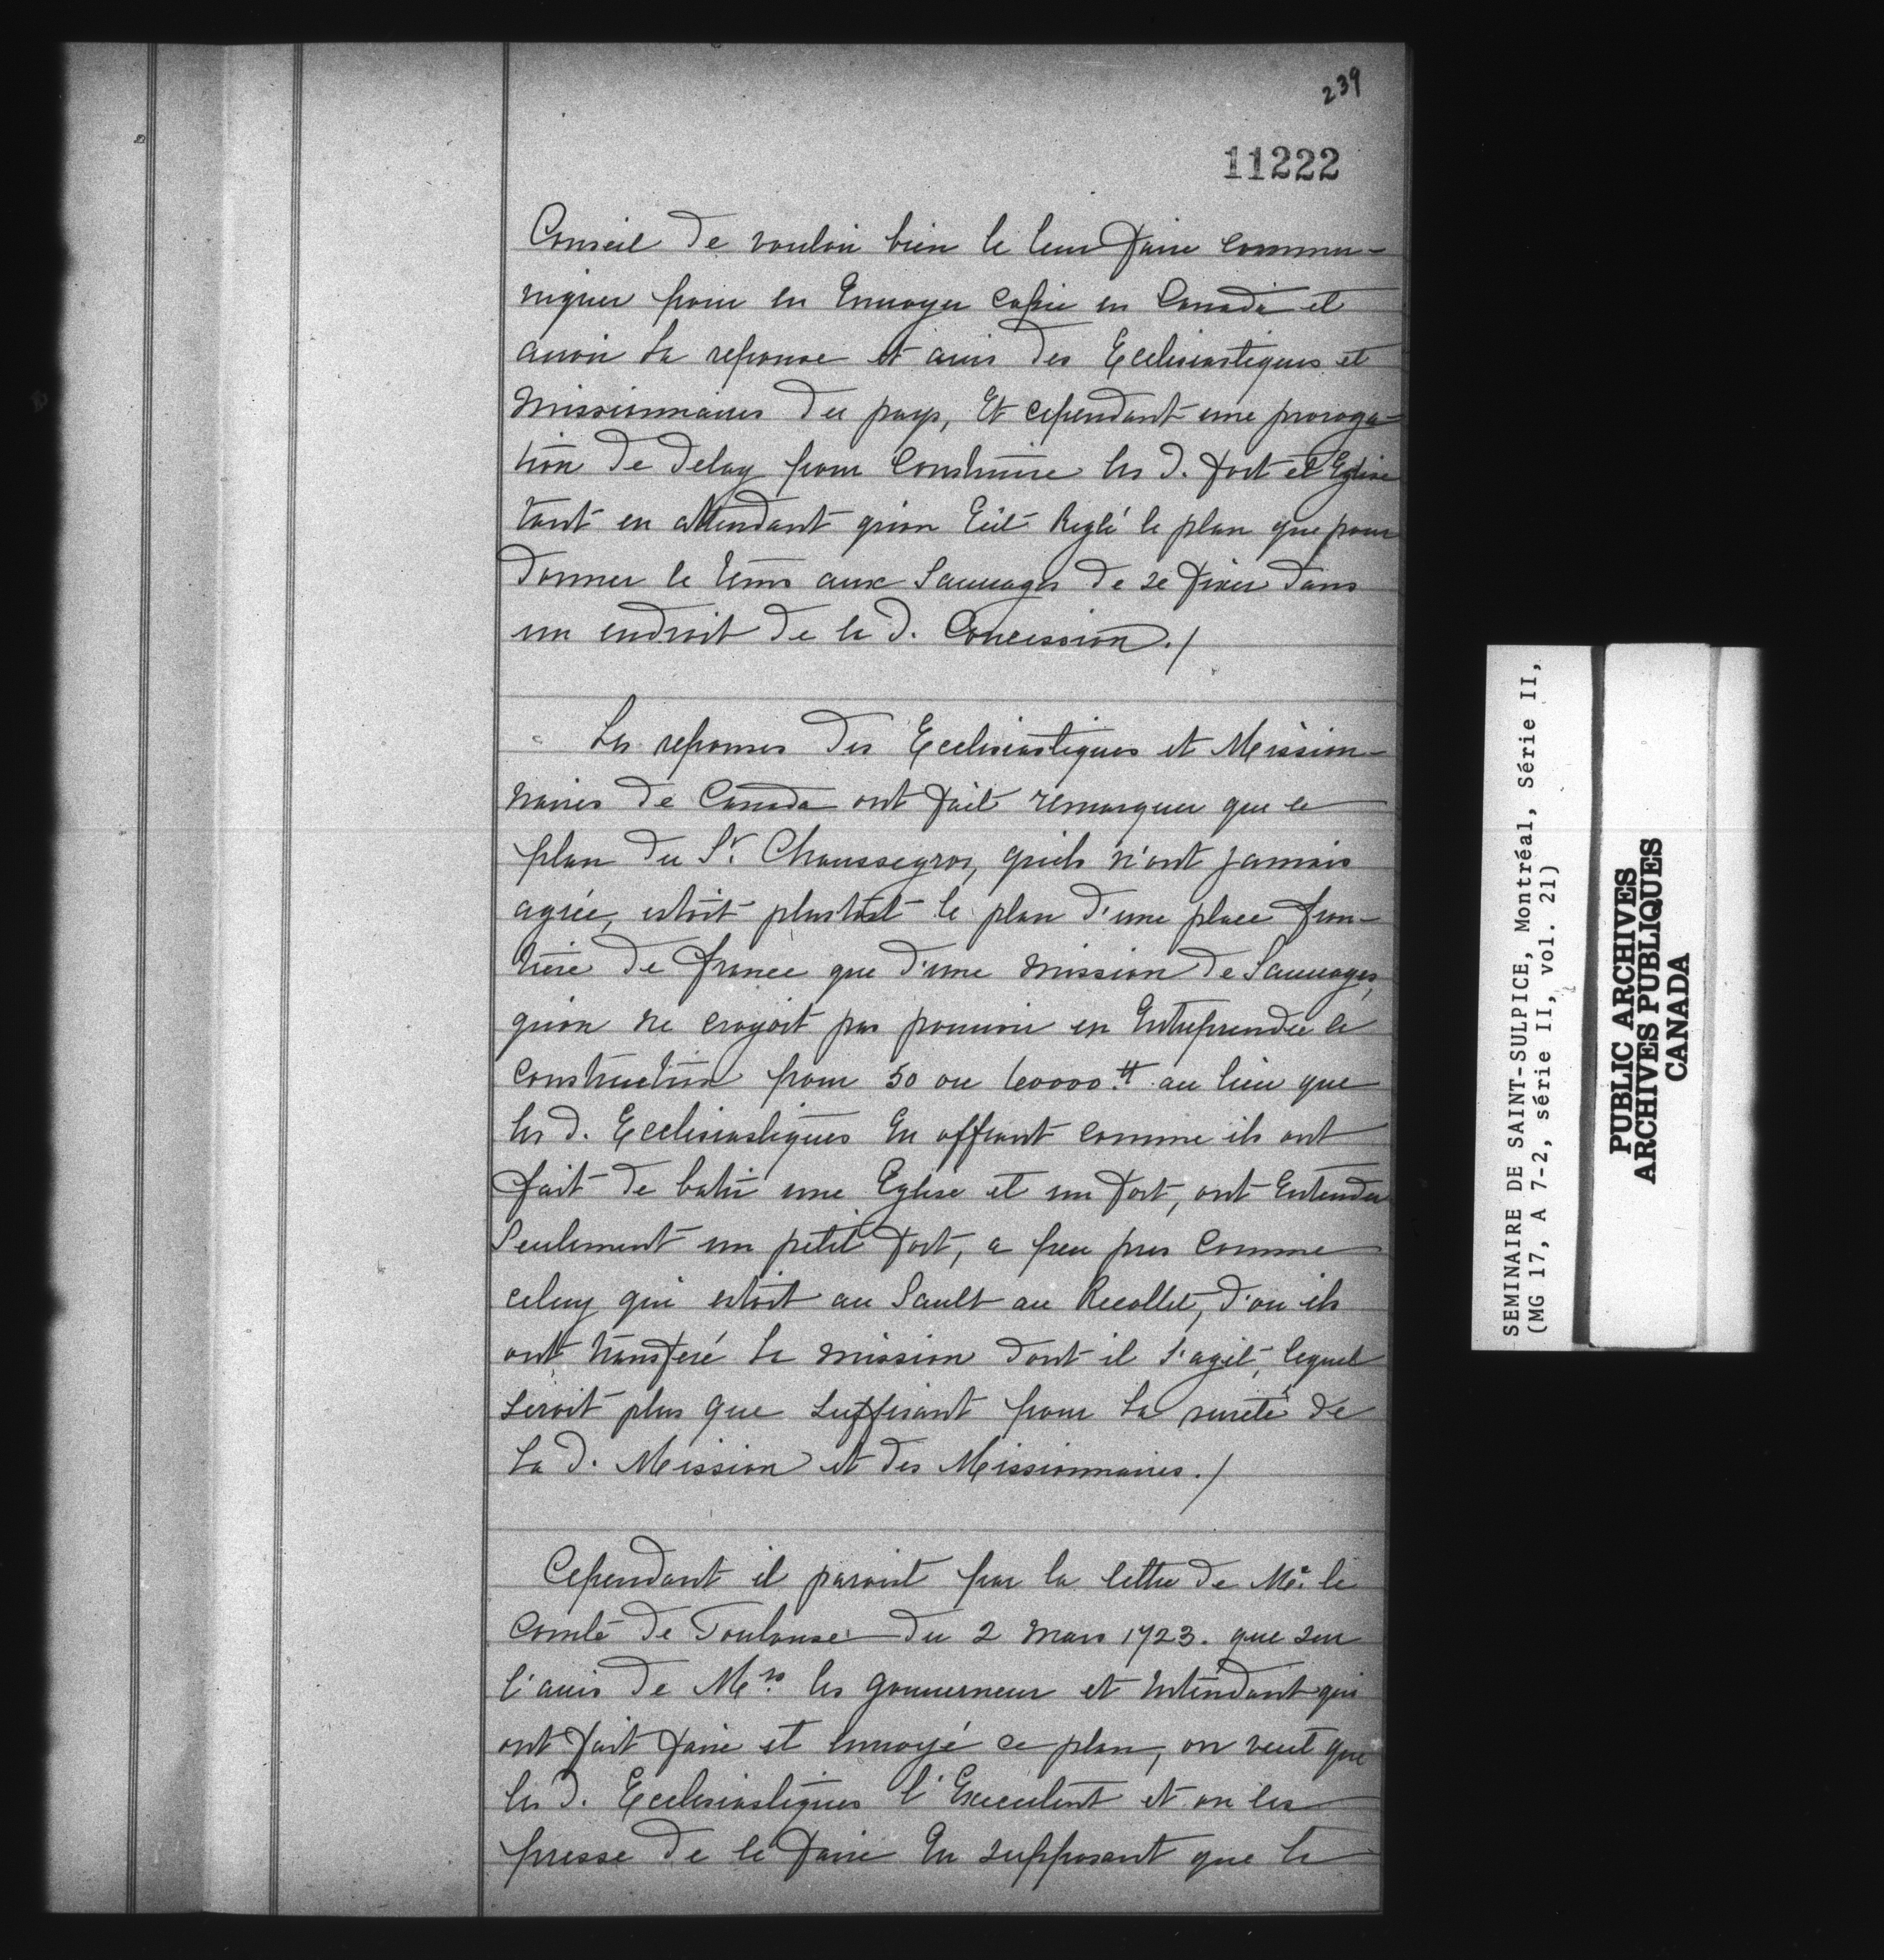 239
11222
Conseil de vouloir bien le leur faire commu-
niquer pour en Envoyer Copie en Canada et
auoir La reponse et auis des Ecclesiastiques et
Missionnaires du pays, Et cependant une proroga-
tion de delay pour Construire les d. fort et Eglise
tant en attendant qu'on Eût Reglé le plan que pour
donner le tems aux Sauuages de se fixer dans
un endroit de la d. Concession./
Les reponses des Ecclesiastiques et Mission-
naires de Canada ont fait remarquer que ce
plan du Sr. Chaussegros, qu'ils n'ont jamais
agrée, estoit plustost le plan d'une place fron-
tière de france que d'une mission de Sauuages,
qu'on ne croyoit pas pouuoir en Entreprendre la
Construction pour 50 ou 60000.tt au lieu que
les d. Ecclesiastiques En offrant comme ils ont
fait de batir une Eglise et un fort, ont Entendu
Seulement un petit fort, a peu pres Comme
celuy qui estoit au Sault au Recollet, d'ou ils
ont transferé La mission dont il s'agit, lequel
seroit plus que suffisant pour La sureté de
La d. Mission et des Missionnaires./
Cependant il paroist par la lettre de Mr. le
Comte de Toulouse du 2 mars 1723. que sur
l'auis de Mrs. les gouuerneur et Intendant qui
ont fait faire et enuoyé ce plan, on veut que
les d. Ecclesiastiques l'Executent et on les
presse de le faire En supposant que la
SEMINAIRE DE SAINT-SULPICE, Montréal, Série II,
(MG 17, A 7-2, série II, vol. 21)
PUBLIC ARCHIVES
ARCHIVES PUBLIQUES
CANADA